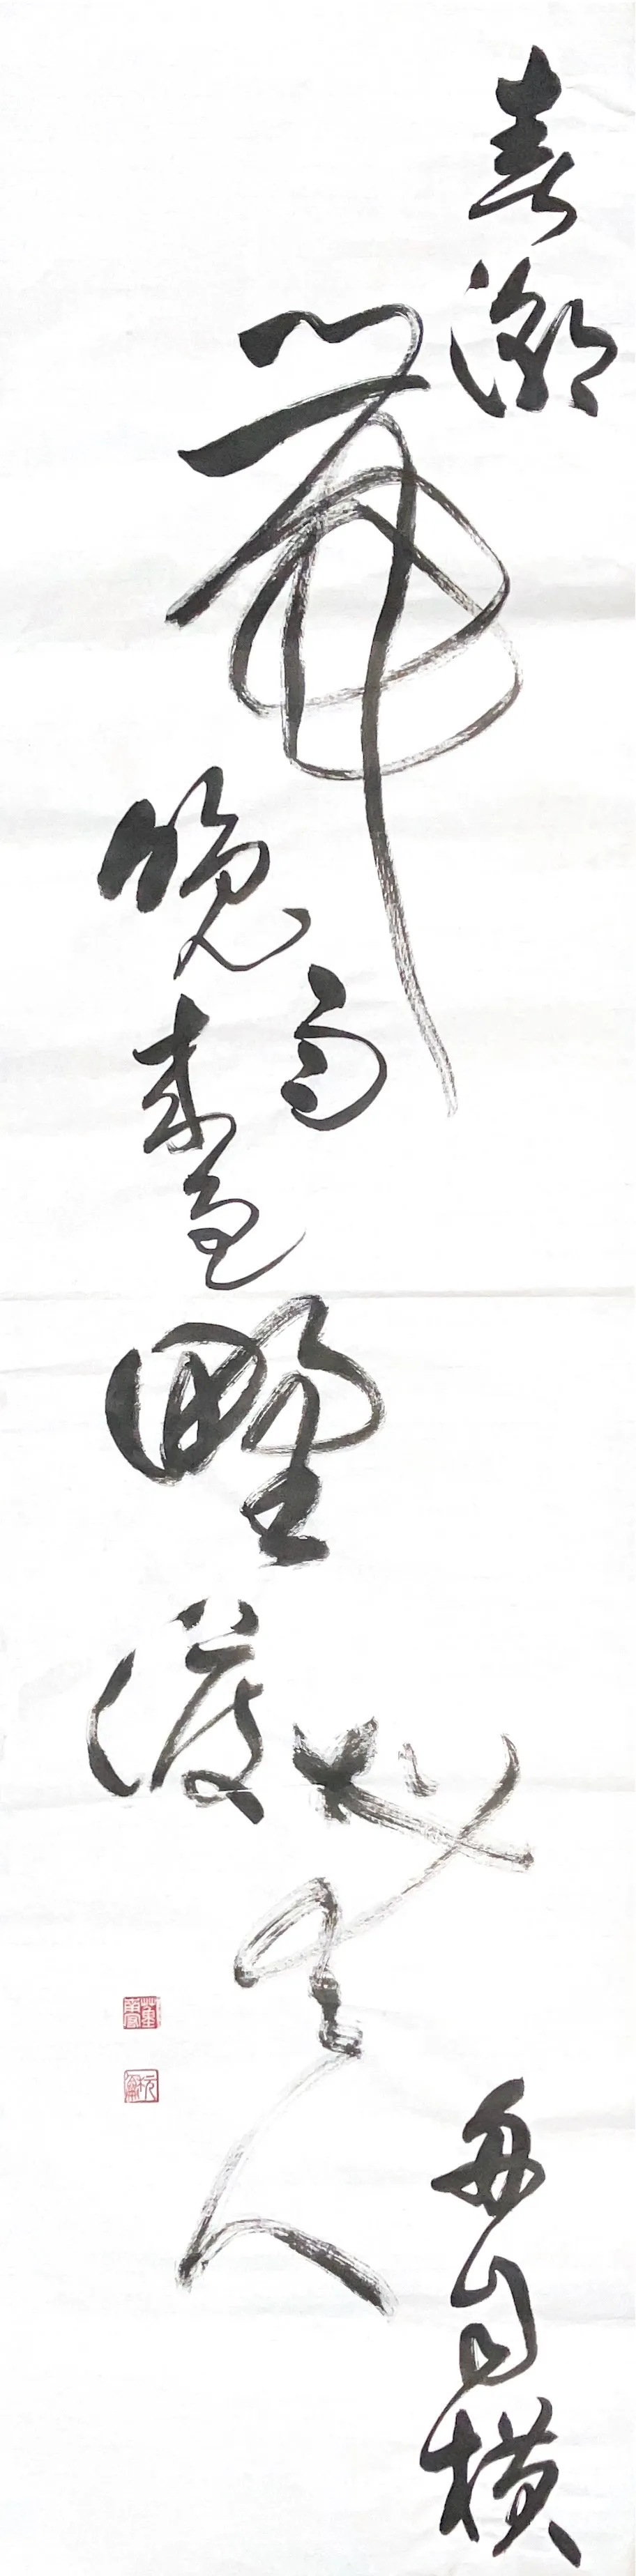 春潮帶雨晚來急野渡無人舟自橫